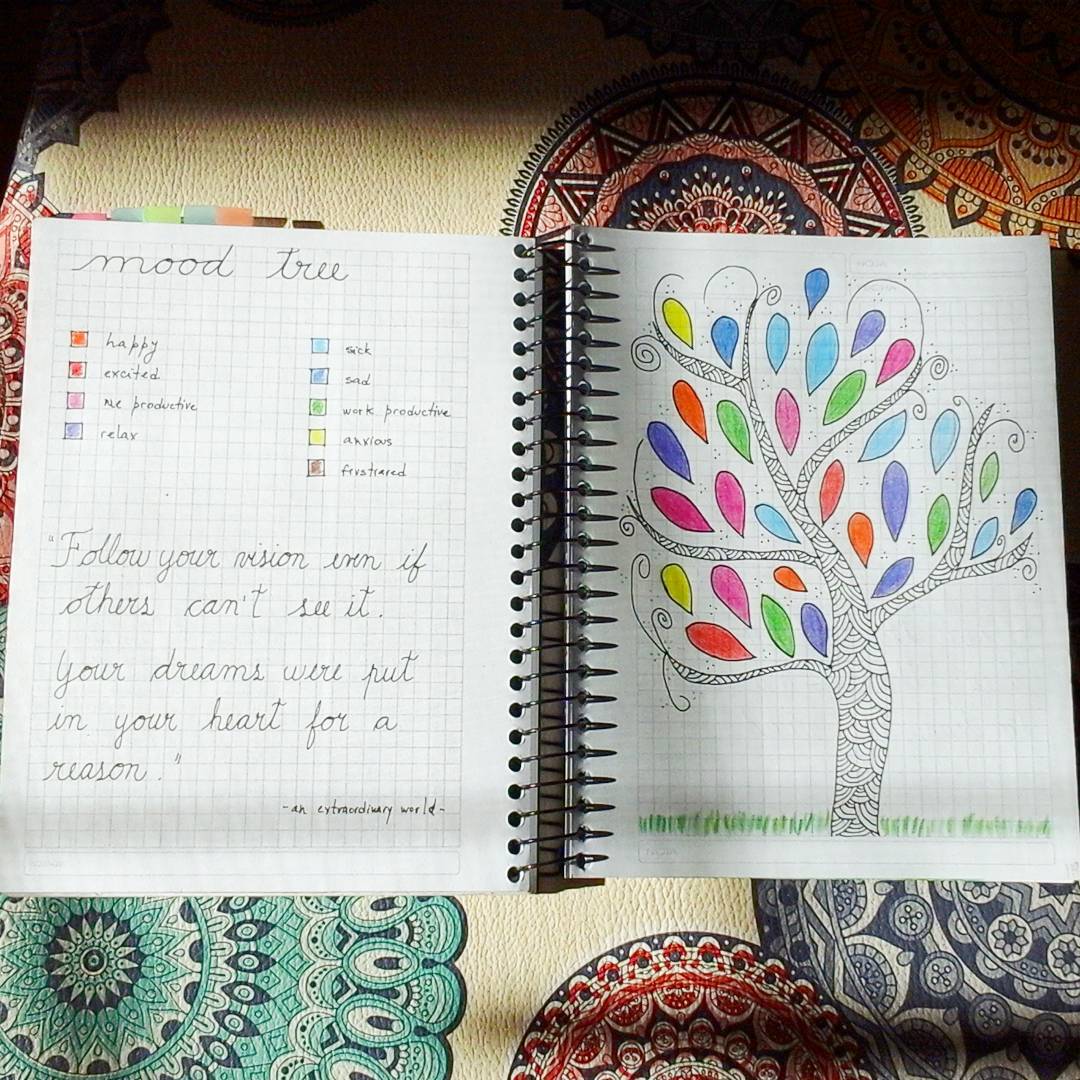 mood tree
happy
excited
me productive
relax
sick
sad
work productive
anxious
frustrared
"Follow your vision even if
others can't see it.
Your dreams were put
in your heart for a
reason."
-an extraordinary world-